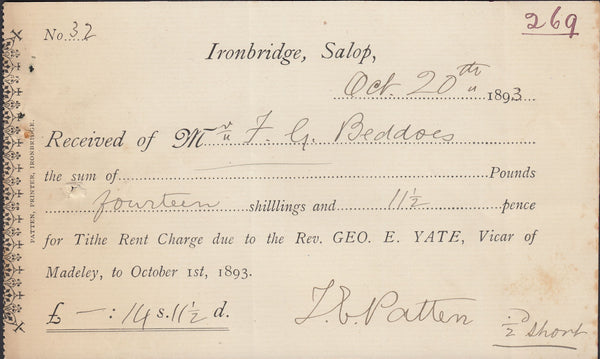 No. 32
269
Ironbridge, Salop,
Oct. 20th 1893
Received of Mr F. G. Beddoes
the sum of Pounds
fourteen shilllings and 11½ pence
for Tithe Rent Charge due to the Rev. GEO. E. YATE, Vicar of
Madeley, to October 1st, 1893.
£ — : 14 s. 11½ d.
T. E. Patten
½d short
PATTEN, PRINTER, IRONBRIDGE.